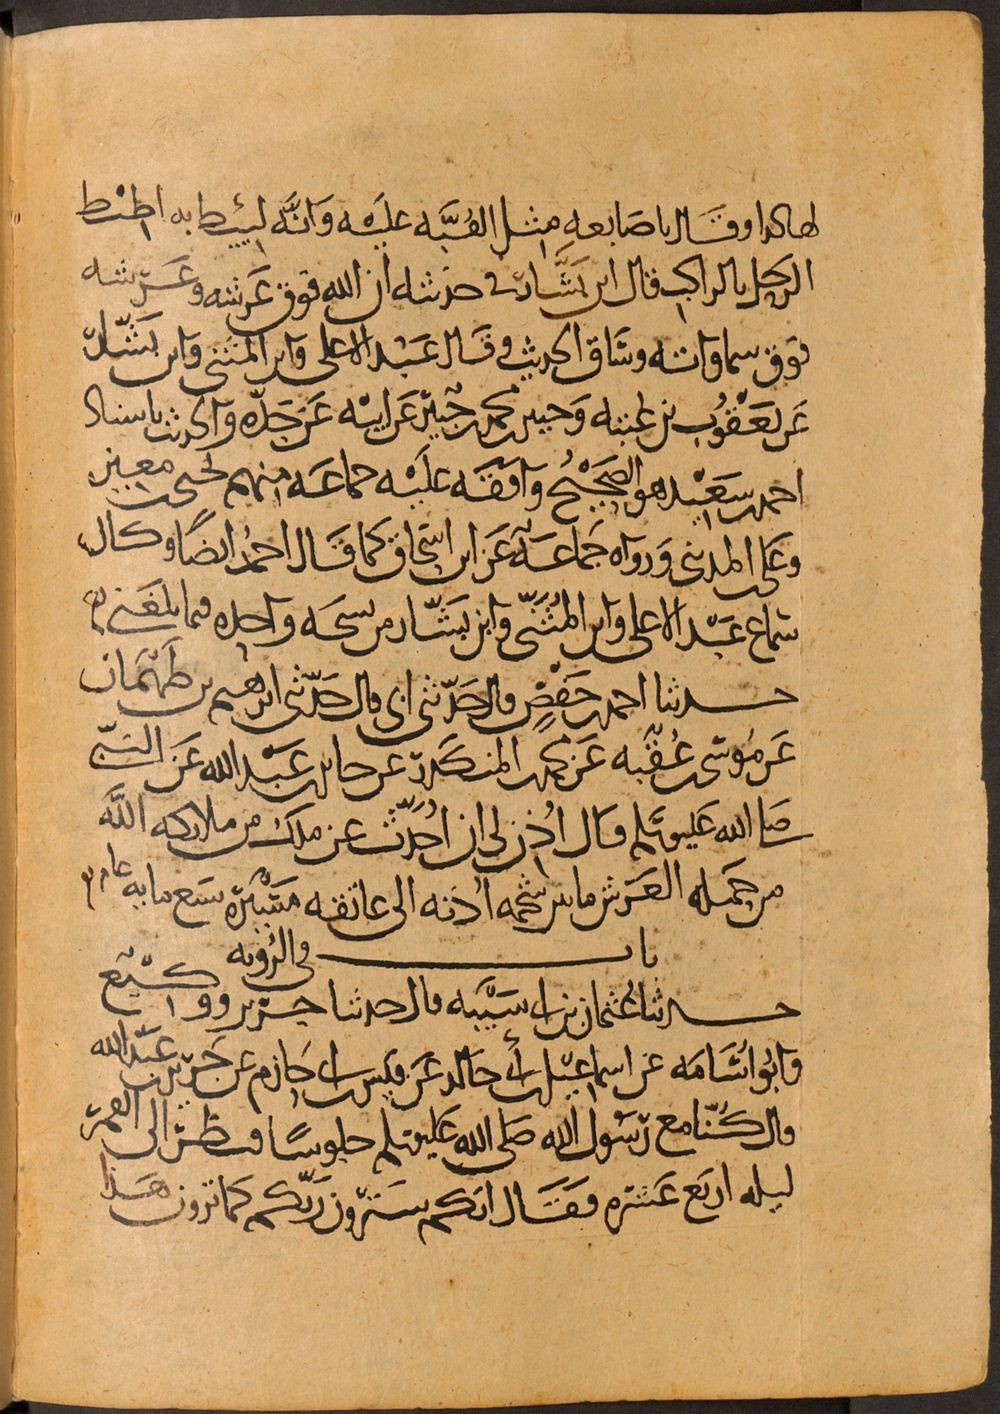 لهاكدا وقال باصابعه مثل القبه عليه وانه ليئط به اطيط
الرحل بالراكب قال ابن بشار في حديثه ان الله فوق عرشه وعرشه
فوق سماواته وساق الحديث وقال عبد الاعلى وابن المثنى وابن بشار
عن يعقوب بن عتبه وجبير بن محمد بن جبير عن ابيه عن جده والحديث باسناد
احمد بن سعيد هو الصحيح وافقه عليه جماعه منهم يحيى بن معين
وعلى بن المديني ورواه جماعة عن ابن اسحاق كما قال احمد ايضا وكان
سماع عبد الاعلى وابن المثنى وابن بشار من نسخه واحده فيما بلغني
حدثنا احمد بن حفص قال حدثني ابي قال حدثني ابرهيم بن طهمان
عن موسى بن عقبه عن محمد بن المنكدر عن جابر بن عبد الله عن النبي
صلى الله عليه وسلم قال اذن لي ان احدث عن ملك من ملائكه الله
من حمله العرش ما بين شحمه اذنه الى عاتقه مسيرة سبع مايه عام
باب في الرؤيه
حدثنا عثمان بن ابي شيبه قال حدثنا جرير ووكيع
وابو اسامه عن اسماعيل بن أبي خالد عن قيس بن ابي حازم عن جرير بن عبد الله
قال كنا مع رسول الله صلى الله عليه وسلم جلوسا فنظر الى القمر
ليله اربع عشره فقال انكم سترون ربكم كما ترون هذا